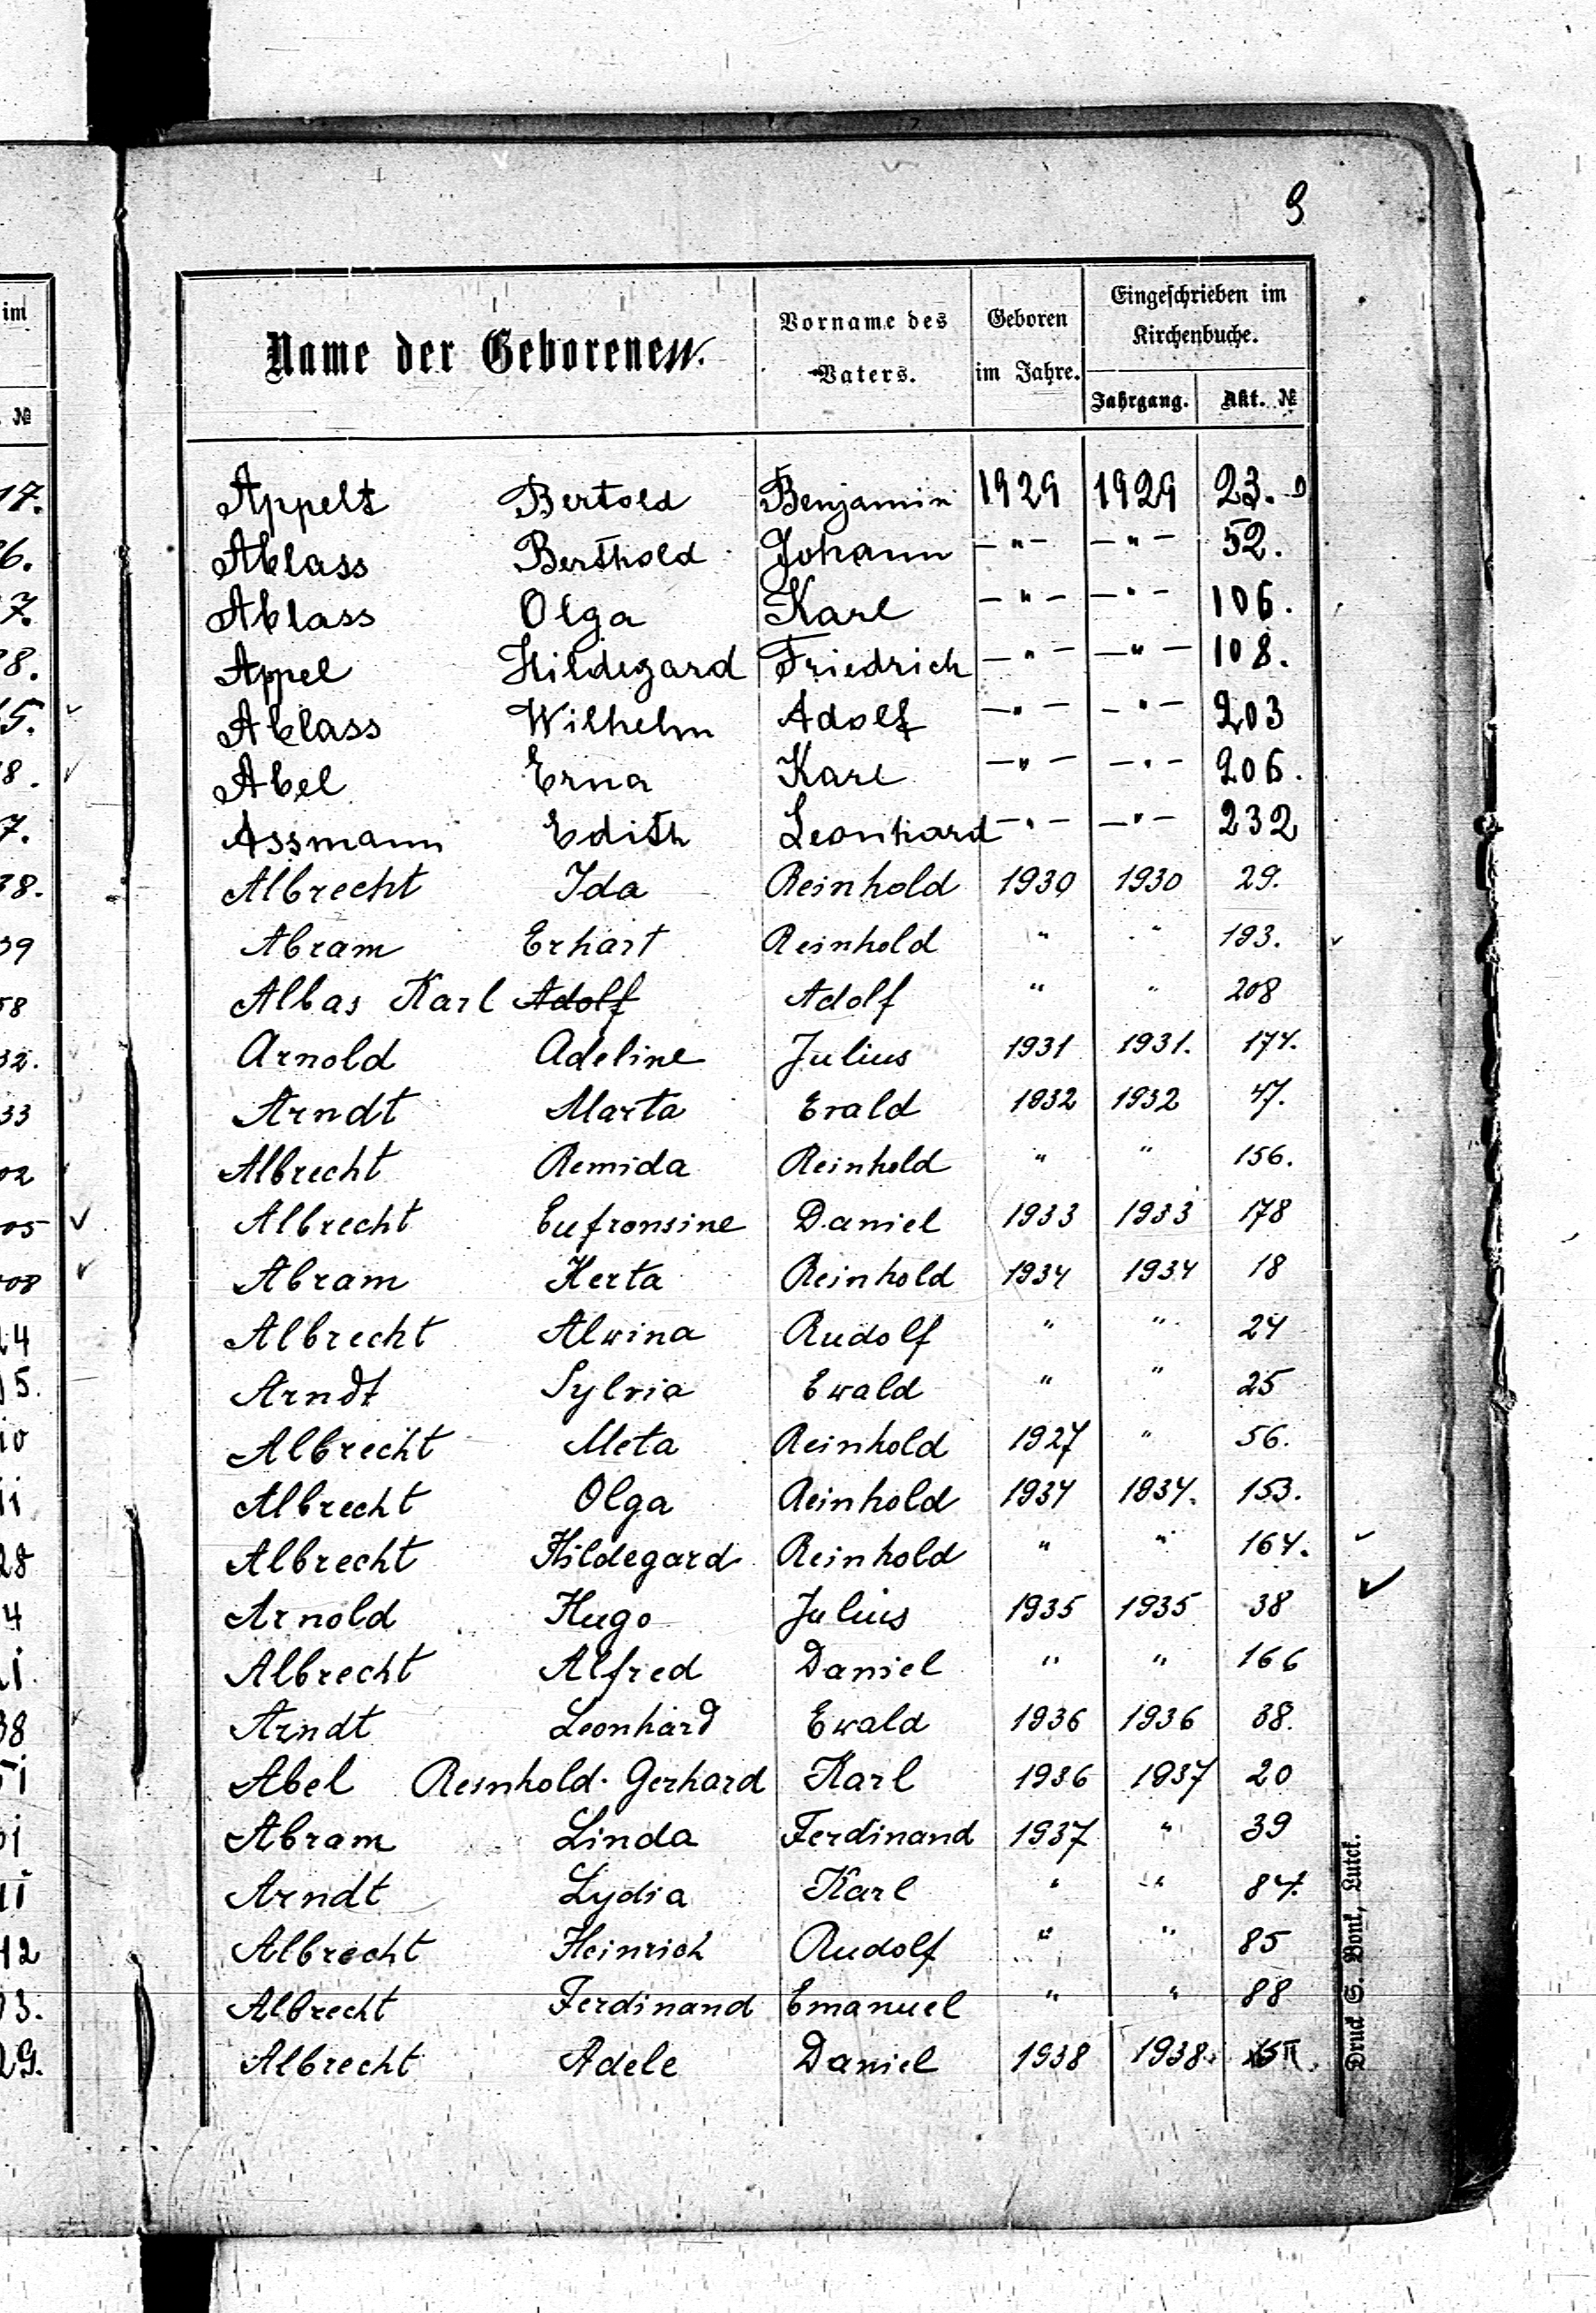 9
im
Name der Geborenen.
Vorname des
Vaters.
Geboren
im Jahre.
Eingeschrieben im
Kirchenbuche.
Jahrgang.
Akt. №
№
Appelt Bertold Benjamin 1929 1929 23.
Ablass Berthold Johann -"- -"- 52.
Ablass Olga Karl -"- -"- 106.
Appel Hildegard Friedrich -"- -"- 108.
Ablass Wilhelm Adolf -"- -"- 203
Abel Erna Karl -"- -"- 206.
Assmann Edith Leonhard -"- -"- 232
Albrecht Ida Reinhold 1930 1930 29.
Abram Erhart Reinhold " " 193.
Albas Karl Adolf Adolf " " 208
Arnold Adeline Julius 1931 1931. 174.
Arndt Marta Evald 1932 1932 47.
Albrecht Remida Reinhold " " 156.
Albrecht Eufronsine Daniel 1933 1933 178
Abram Herta Reinhold 1934 1934 18
Albrecht Alvina Rudolf " " 24
Arndt Sylvia Ewald " " 25
Albrecht Meta Reinhold 1927 " 56.
Albrecht Olga Reinhold 1934 1934. 153.
Albrecht Hildegard Reinhold " " 164.
Arnold Hugo Julius 1935 1935 38
Albrecht Alfred Daniel " " 166
Arndt Leonhard Ewald 1936 1936 38.
Abel Reinhold Gerhard Karl 1936 1937 20
Abram Linda Ferdinand 1937 " 39
Arndt Lydia Karl " " 84.
Albrecht Heinrich Rudolf " " 85
Albrecht Ferdinand Emanuel " " 88
Albrecht Adele Daniel 1938 1938.
Druck S. Bont, Lutck.